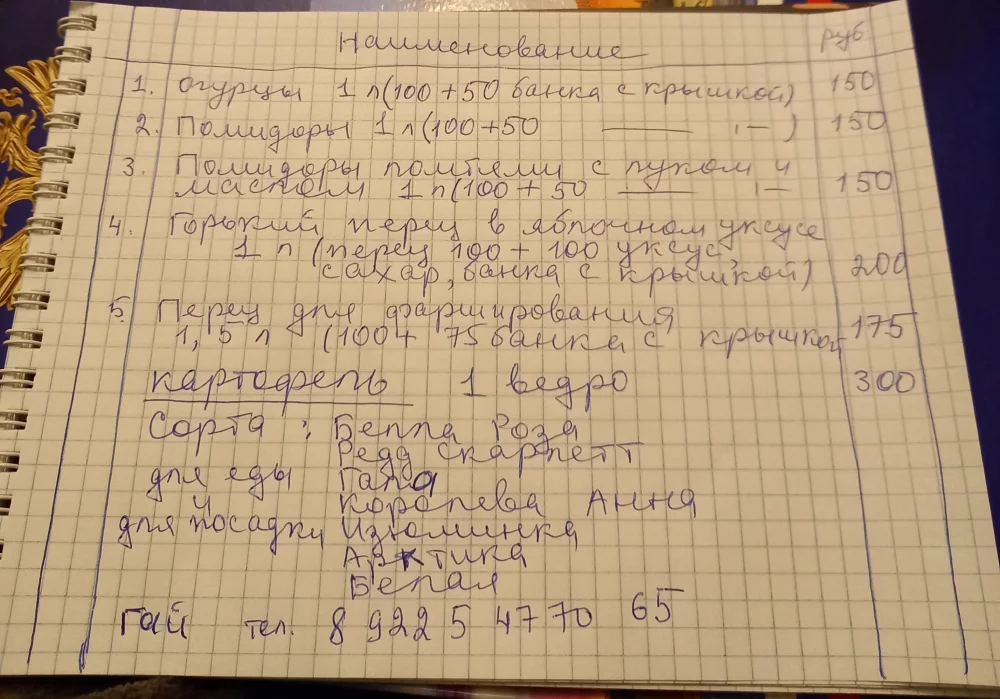 Наименование руб
1. Огурцы 1 л (100 + 50 банка с крышкой) 150
2. Помидоры 1 л (100 + 50 —— ,— ) 150
3. Помидоры ломтями с луком и
маслом 1 л (100 + 50 —— ,— 150
4. Горький перец в яблочном уксусе
1 л (перец 100 + 100 уксус,
сахар, банка с крышкой) 200
5. Перец для фарширования
1,5 л (100 + 75 банка с крышкой 175
картофель 1 ведро 300
Сорта : Белла Роза
Редд Скарлетт
для еды Гала
и Королева Анна
для посадки Изюминка
Арктика
Белая
Гай тел. 8 922 5 47 70 65